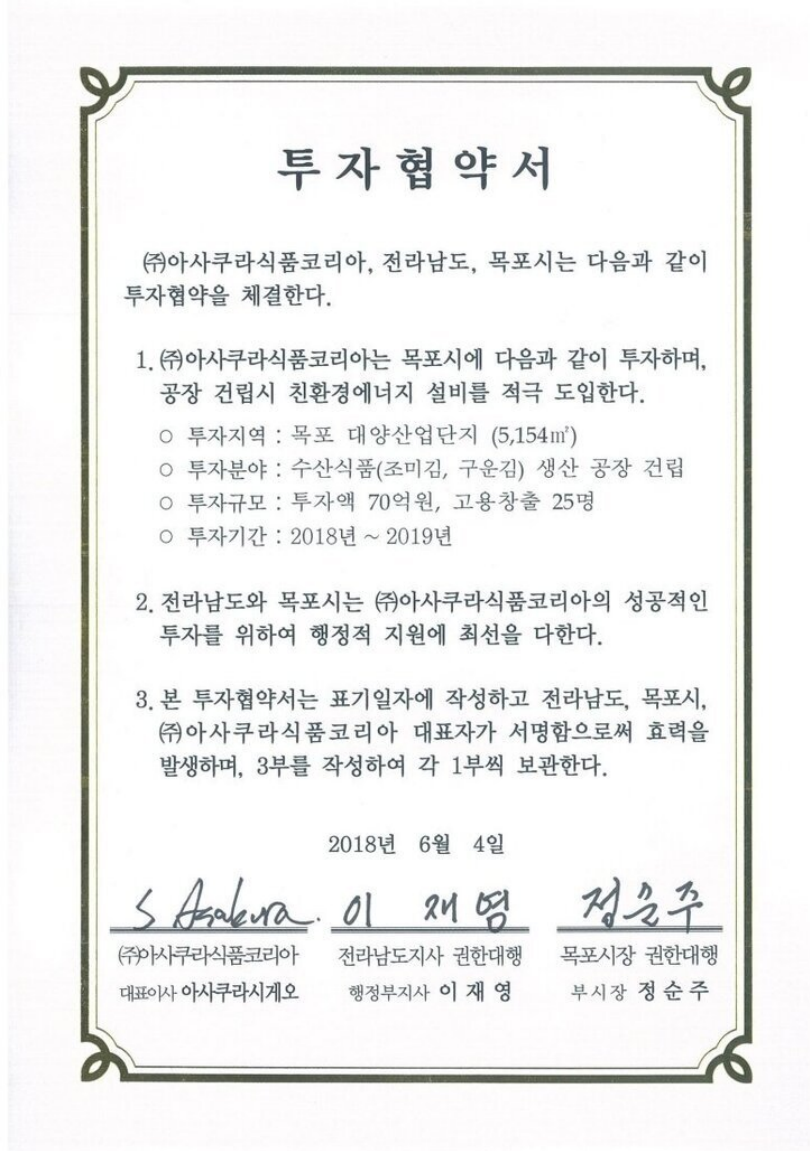 투자협약서
㈜아사쿠라식품코리아, 전라남도, 목포시는 다음과 같이
투자협약을 체결한다.
1. ㈜아사쿠라식품코리아는 목포시에 다음과 같이 투자하며,
공장 건립시 친환경에너지 설비를 적극 도입한다.
○ 투자지역 : 목포 대양산업단지 (5,154㎡)
○ 투자분야 : 수산식품(조미김, 구운김) 생산 공장 건립
○ 투자규모 : 투자액 70억원, 고용창출 25명
○ 투자기간 : 2018년 ~ 2019년
2. 전라남도와 목포시는 ㈜아사쿠라식품코리아의 성공적인
투자를 위하여 행정적 지원에 최선을 다한다.
3. 본 투자협약서는 표기일자에 작성하고 전라남도, 목포시,
㈜아사쿠라식품코리아 대표자가 서명함으로써 효력을
발생하며, 3부를 작성하여 각 1부씩 보관한다.
2018년 6월 4일
S Asakura. 이 재영 정순주
㈜아사쿠라식품코리아 전라남도지사 권한대행 목포시장 권한대행
대표이사 아사쿠라시게오 행정부지사 이재영 부시장 정순주